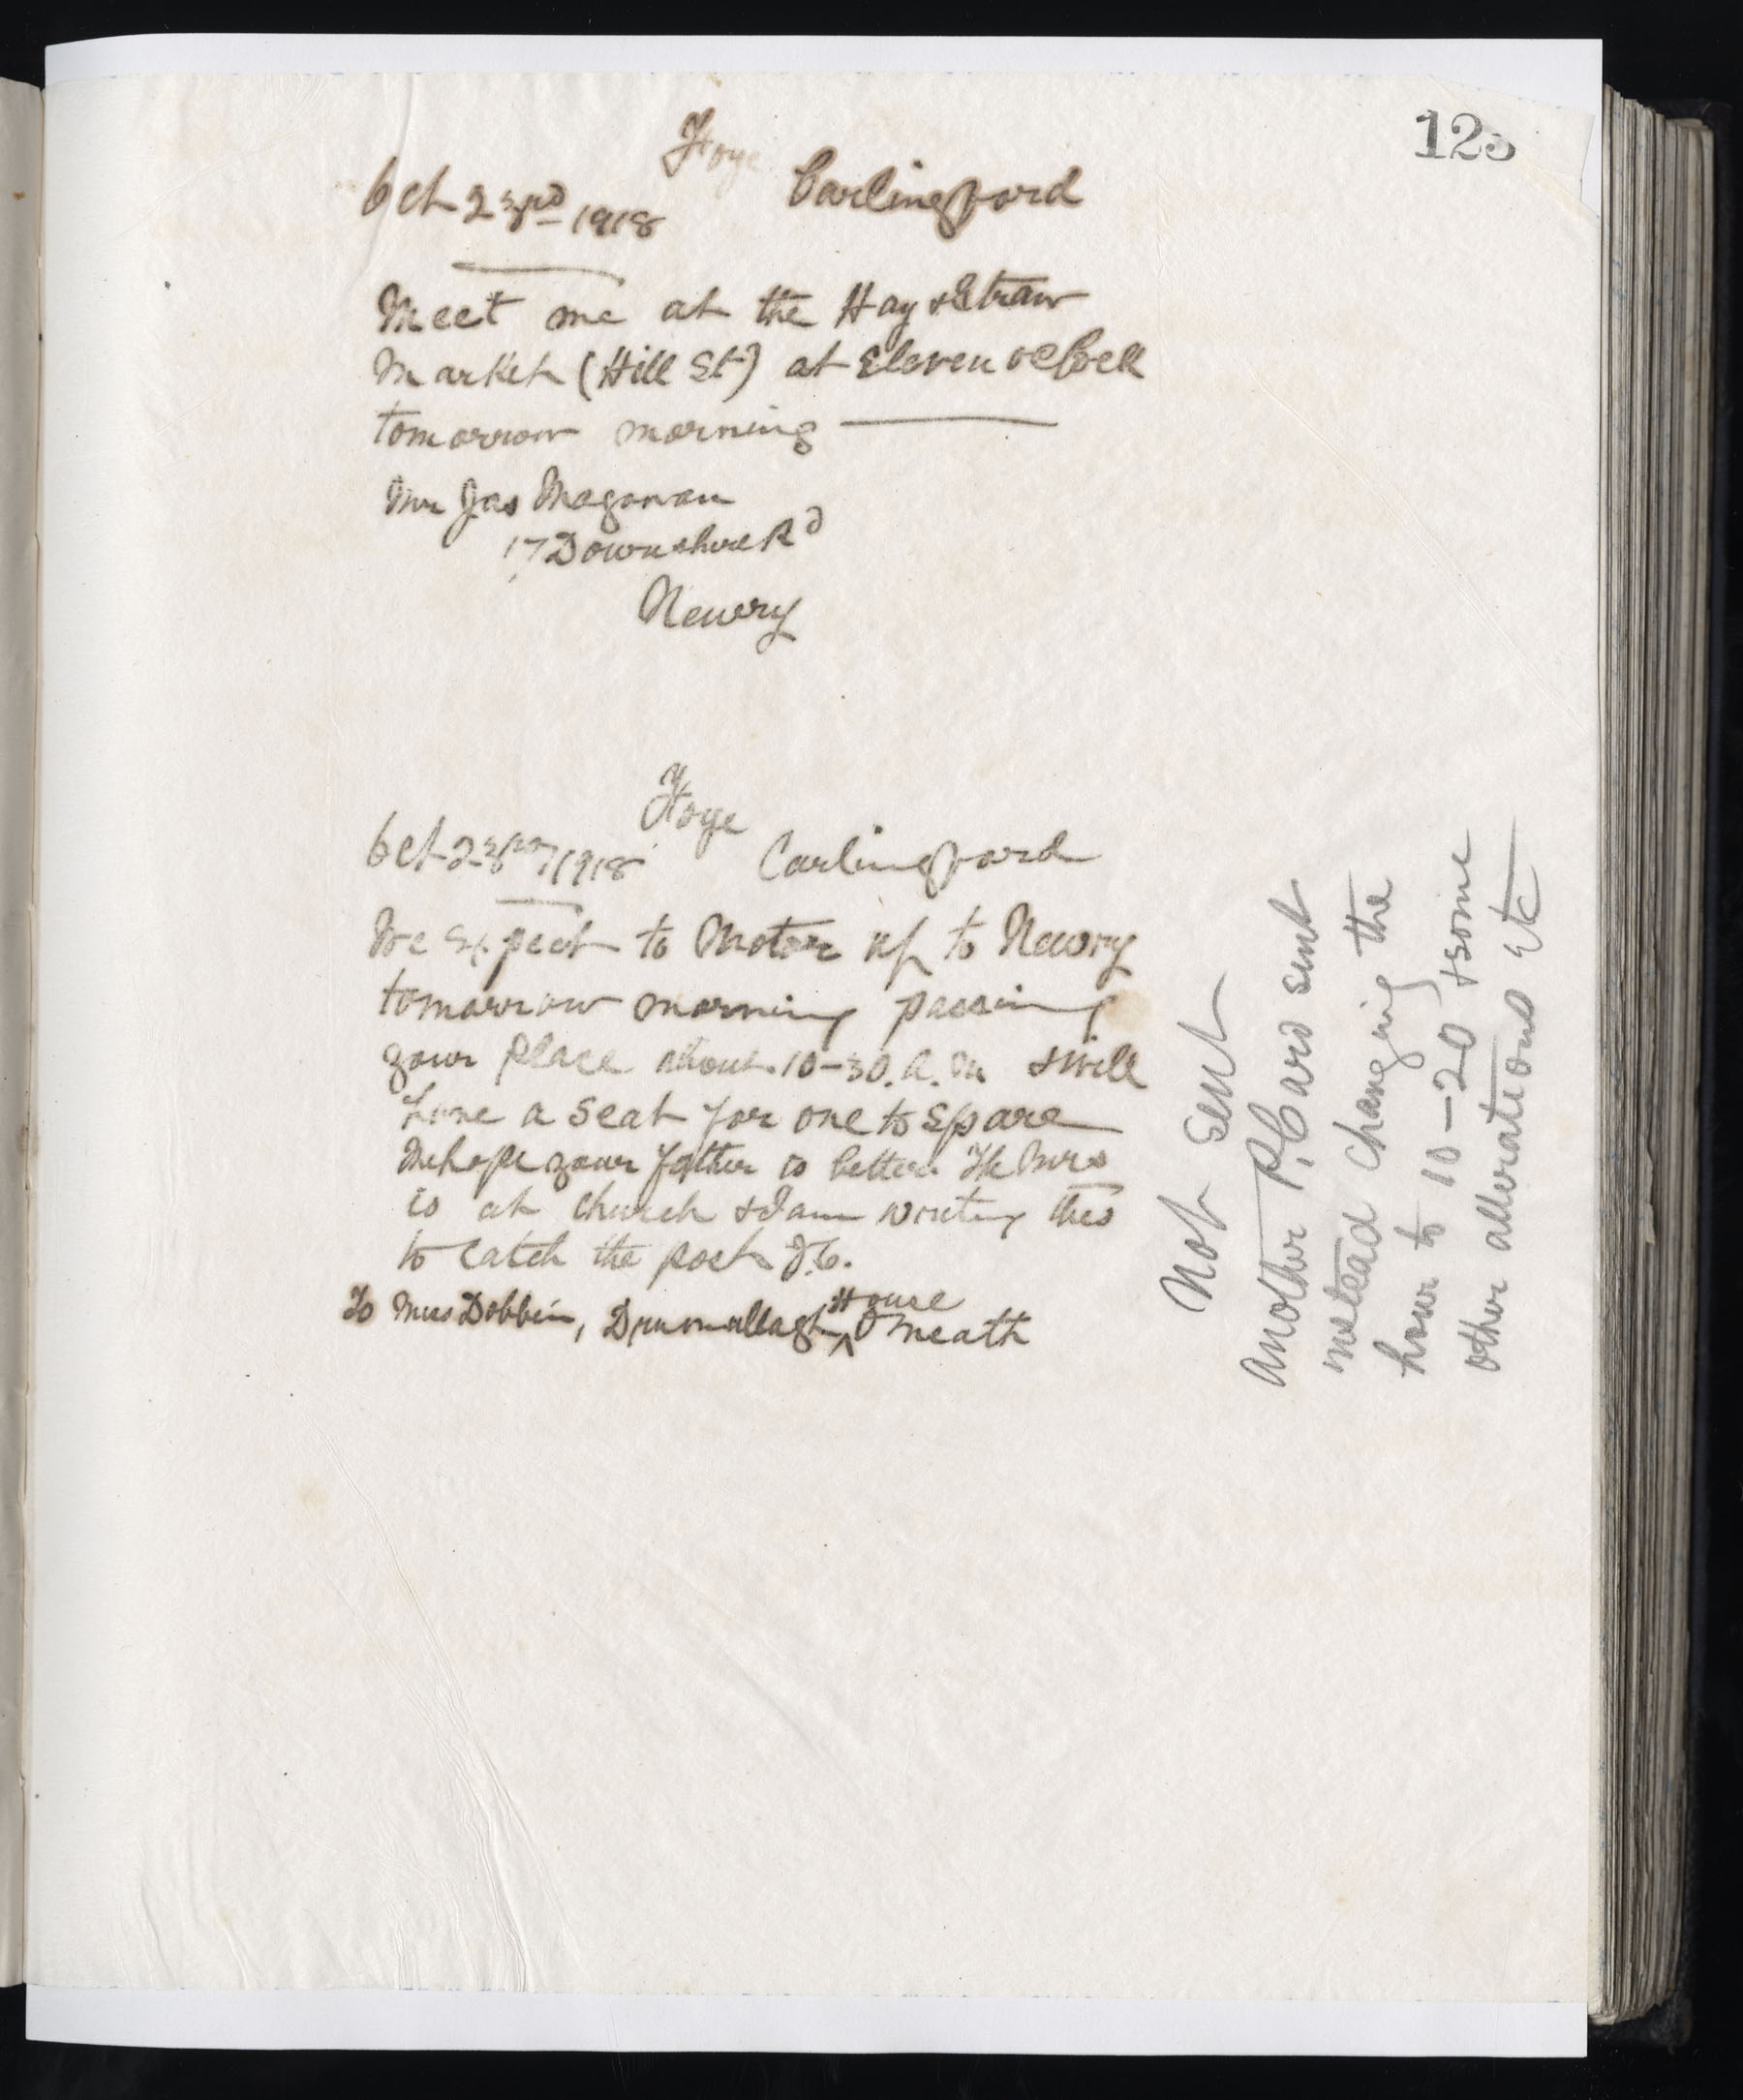 123
Foye
Oct 23rd 1918 Carlingford
Meet me at the Hay & Straw
Market (Hill St) at Eleven oClock
tomorrow morning
Mr Jas Magowan
17 Downshire Rd
Newry
Foye
Oct 23rd/1918 Carlingford
We Expect to Motor up to Newry
tomorrow morning passing
your place about 10-30. A.M & will
have a seat for one to spare
We hope your father is better The Mrs
is at church & I am writing this
to catch the post
House
To Miss Dobbin, Drummullagh ^ Omeath
Not sent
Another P. Card sent
instead changing the
hour to 10-20 & some
other alterations Etc